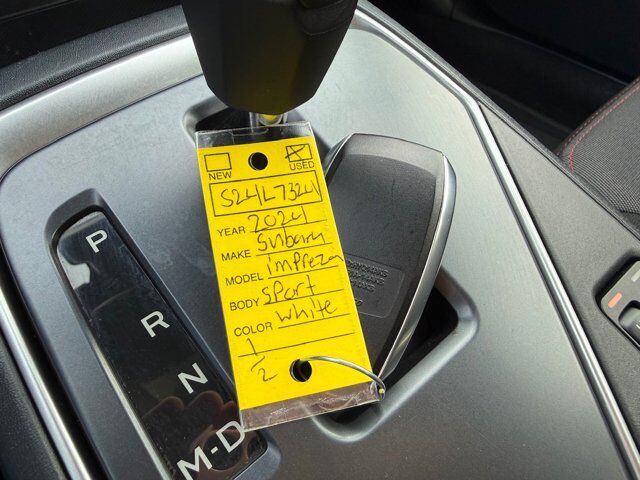 NEW
USED
S24L7324
YEAR 2024
MAKE Subaru
MODEL impreza
BODY sport
COLOR white
1/2
P
R
N
M-D